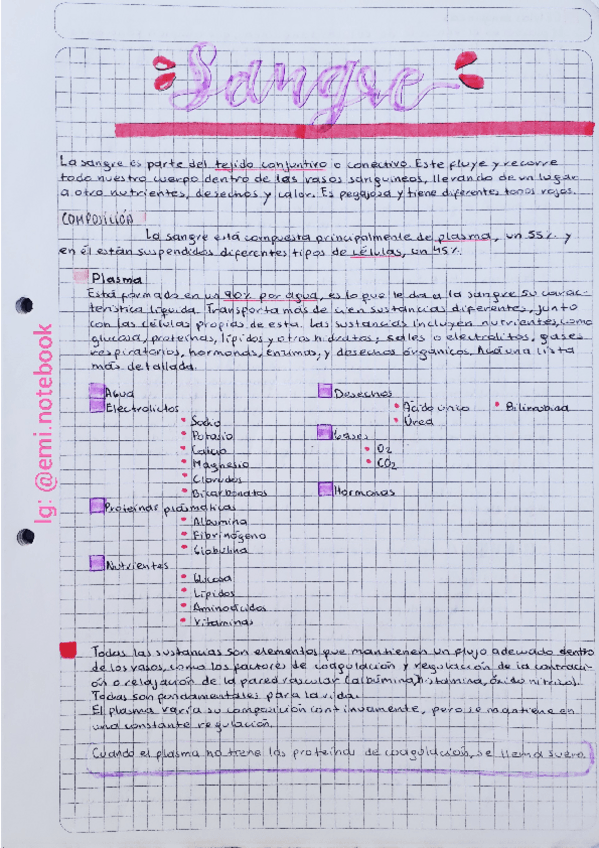 Sangre
La sangre es parte del tejido conjuntivo o conectivo. Este fluye y recorre
todo nuestro cuerpo dentro de los vasos sanguíneos, llevando de un lugar
a otro nutrientes, desechos y calor. Es pegajosa y tiene diferentes tonos rojos.
COMPOSICIÓN
La sangre está compuesta principalmente de plasma, un 55% y
en él están suspendidos diferentes tipos de células, un 45%.
Plasma
Está formada en un 90% por agua, es lo que le da a la sangre su carac-
terística líquida. Transporta más de cien sustancias diferentes, junto
con las células propias de esta. Las sustancias incluyen nutrientes, como
glucosa, proteínas, lípidos y otros hidratos; sales o electrolitos, gases
respiratorios, hormonas, enzimas, y desechos orgánicos. Aquí una lista
más detallada.
Agua
Electrolitos
Sodio
Potasio
Calcio
Magnesio
Cloruros
Bicarbonatos
Proteínas plasmáticas
Albumina
Fibrinógeno
Globulina
Nutrientes
Glucosa
Lípidos
Aminoácidos
Vitaminas
Desechos
Ácido único Bilirrubina
Úrea
Gases
O2
CO2
Hormonas
Todas las sustancias son elementos que mantienen un flujo adecuado dentro
de los vasos, como los factores de coagulación y regulación de la contracci-
ón o relajación de la pared vascular (albúmina, histamina, óxido nítrico).
Todas son fundamentales para la vida.
El plasma varía su composición continuamente, pero se mantiene en
una constante regulación.
Cuando el plasma no tiene las proteínas de coagulación, se llama suero.
Ig: @emi.notebook